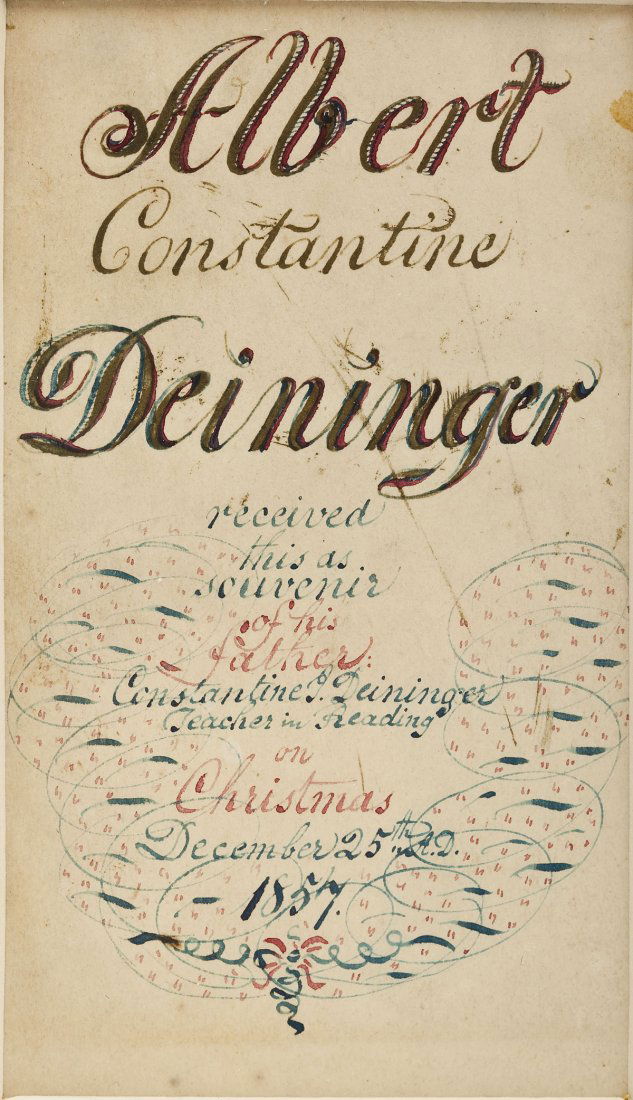 Albert
Constantine
Deininger
received
this as
souvenir
of his
father:
Constantine J. Deininger
Teacher in Reading
on
Christmas
December 25th A.D.
1857.